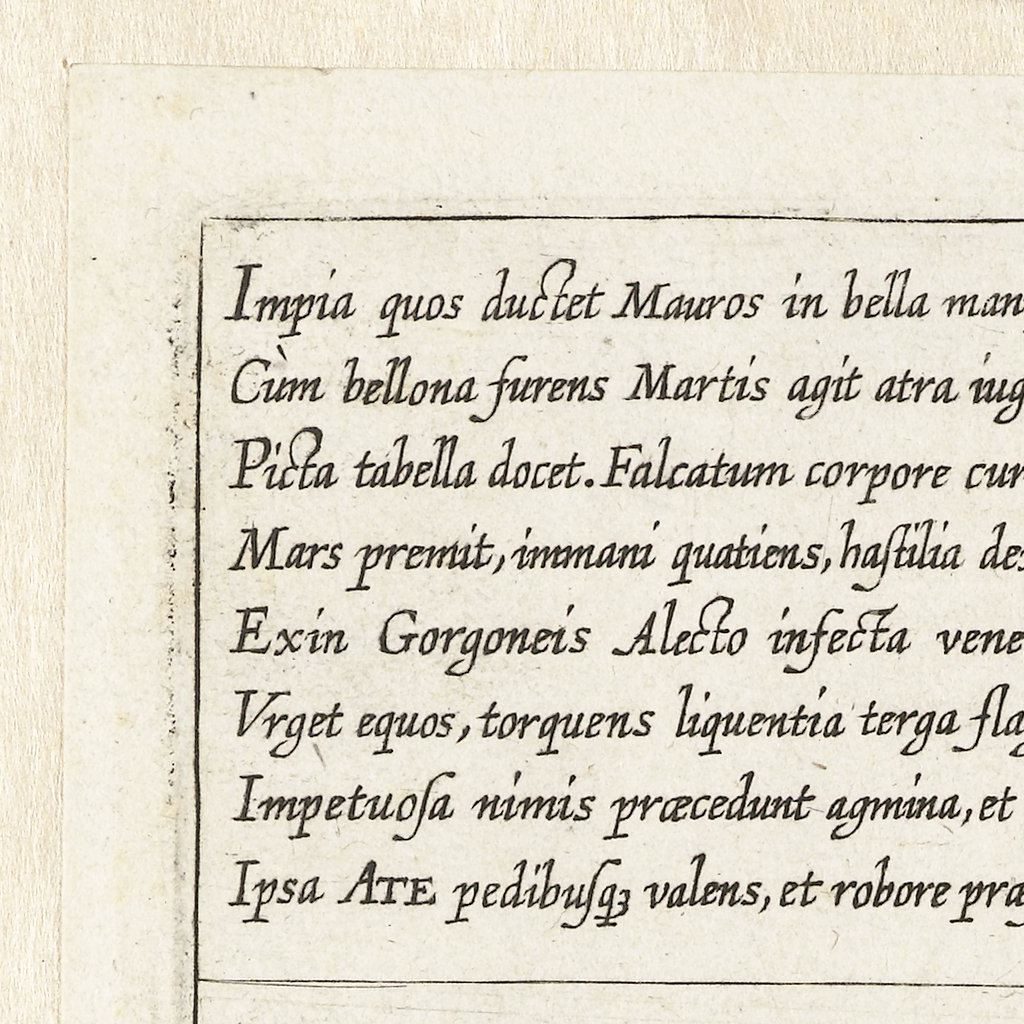 Impia quos ductet Mauros in bella man
Cùm bellona furens Martis agit atra iug
Picta tabella docet. Falcatum corpore cur
Mars premit, immani quatiens, haſtilia de
Exin Gorgoneis Alecto infecta vene
Vrget equos, torquens liquentia terga fla
Impetuoſa nimis præcedunt agmina, et
Ipsa ATE pedibuſqꝫ valens, et robore præ